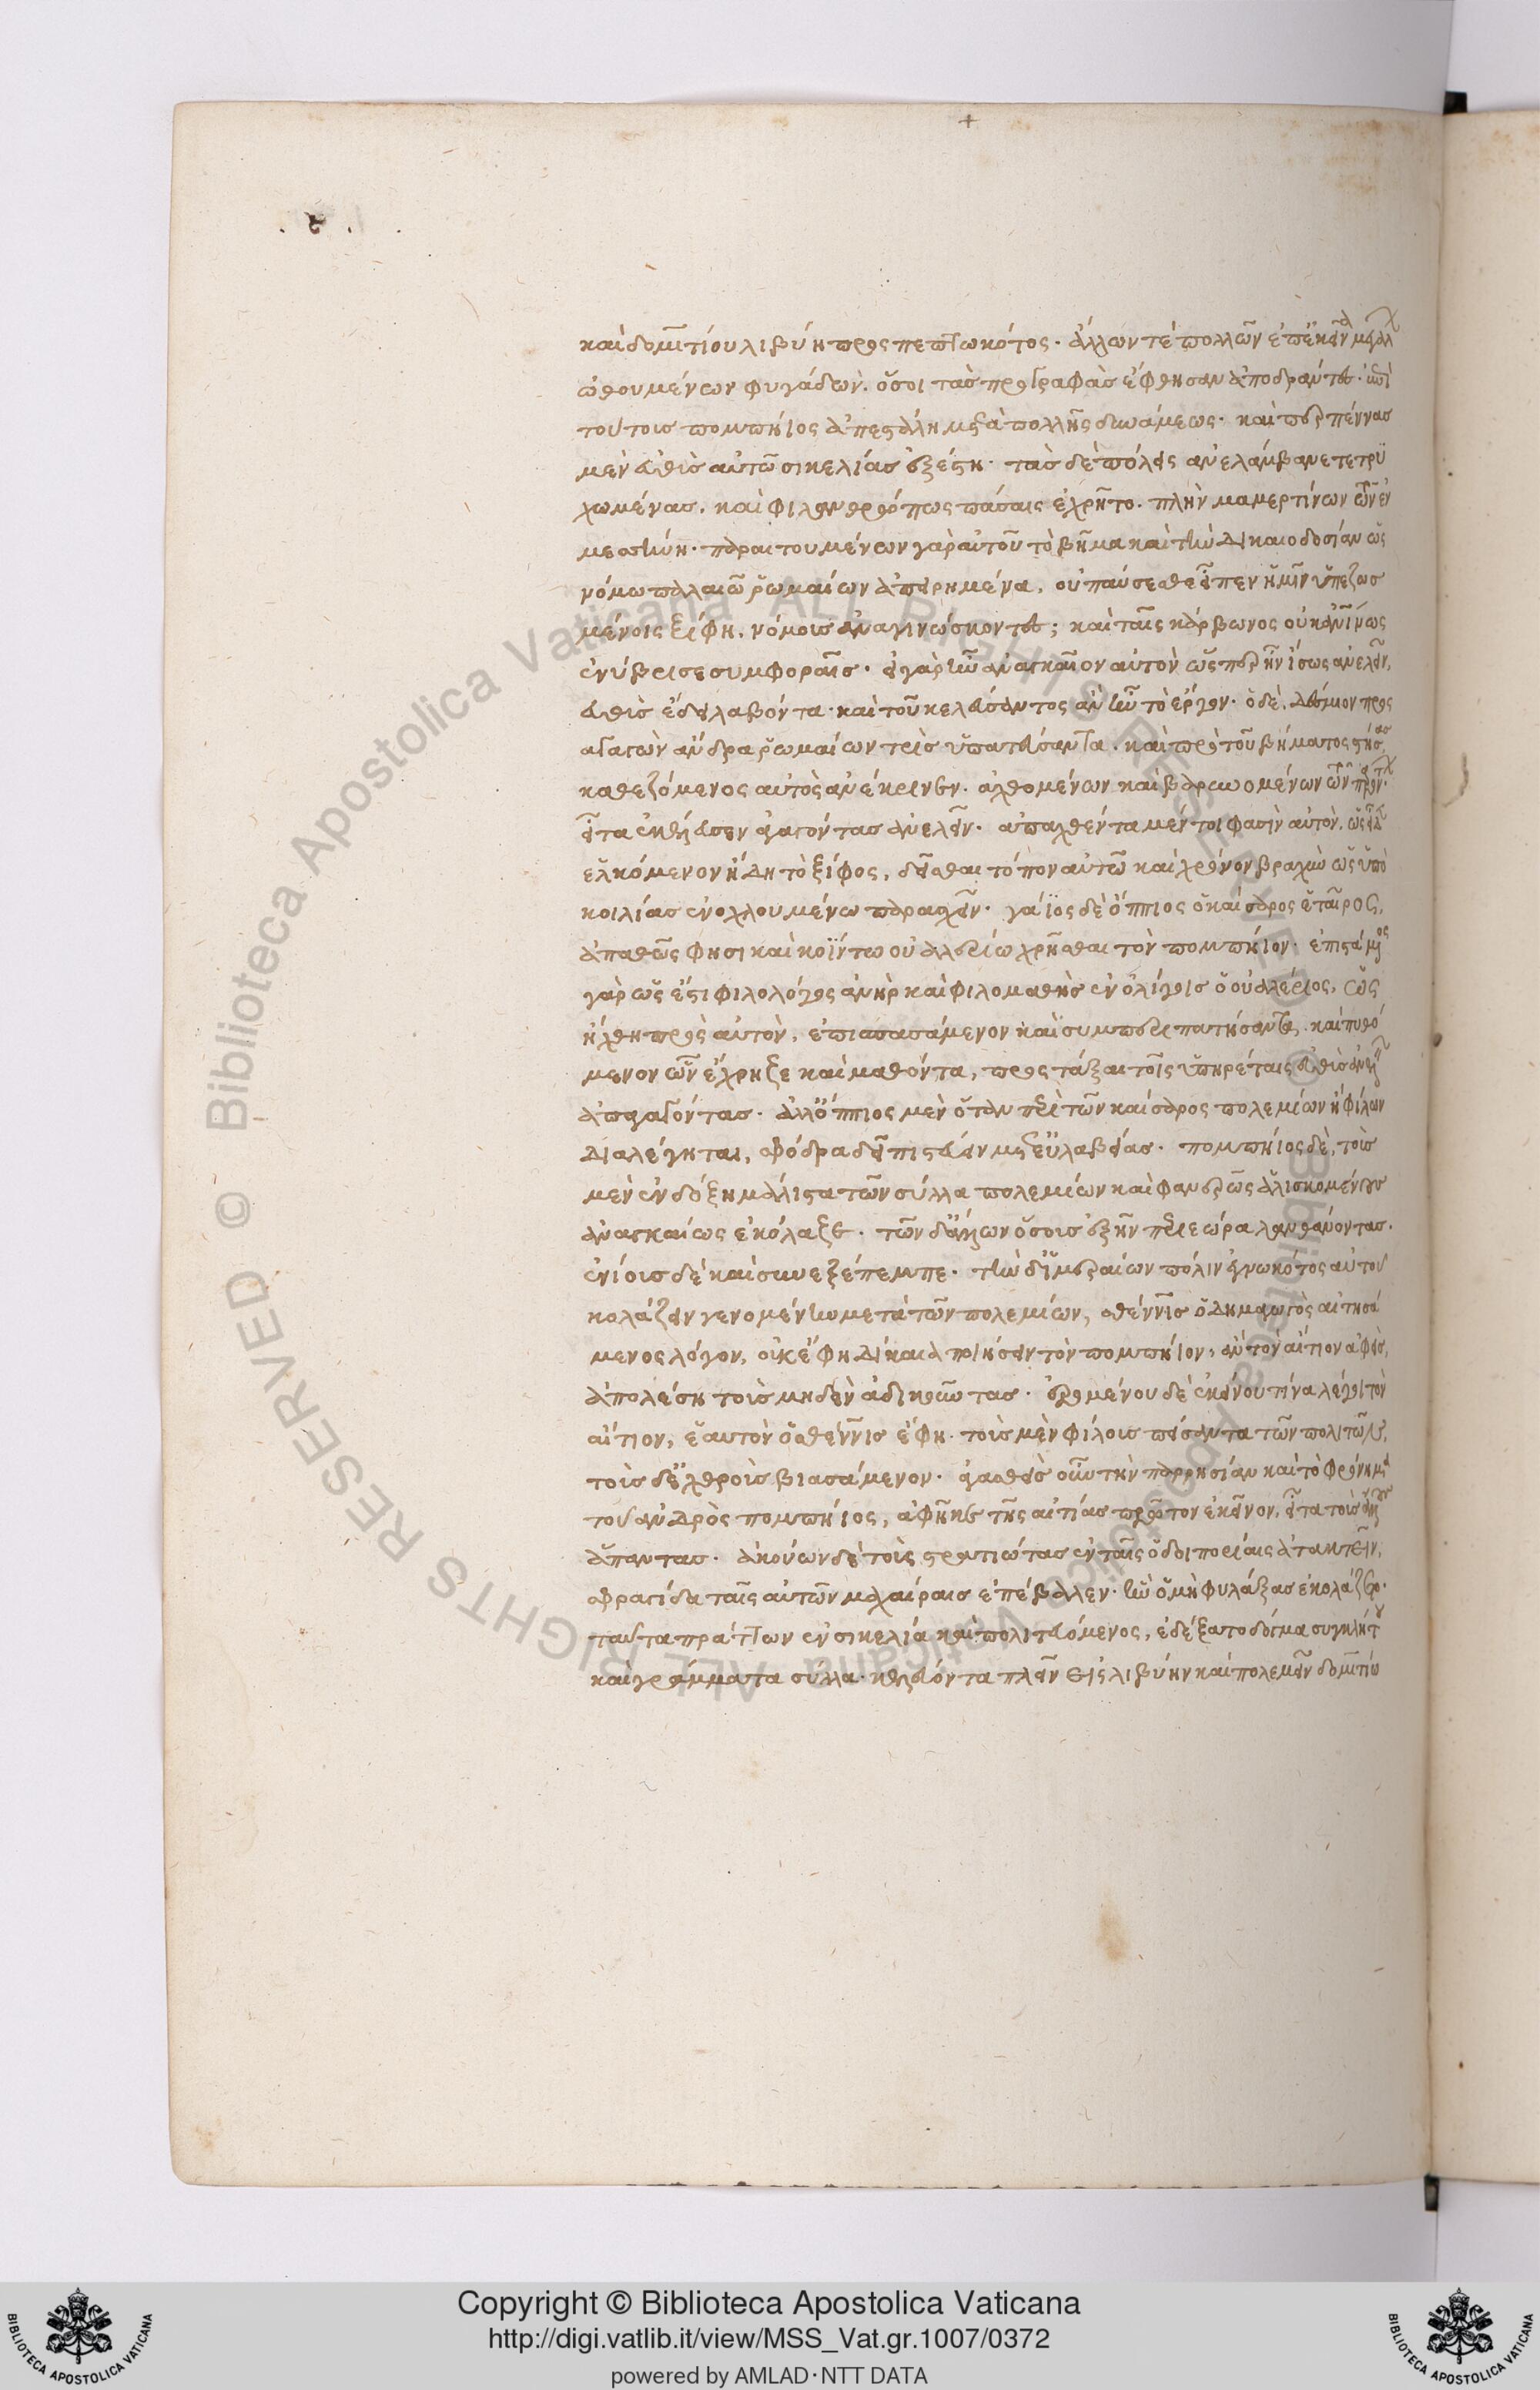 καὶ δομιτίου λιβύη προσπεπτωκότος· ἄλλων τὲ πολλῶν ἐπέκεινα μεγάλ
ὠθουμένων φυγάδων. ὅσοι τὰς προγραφὰς ἔφθησαν ἀποδράντες· ἐπὶ
τούτοις πομπήϊος ἀπεστάλη μετὰ πολλῆς δυνάμεως· καὶ περπέννας
μὲν εὐθὺς αὐτῶ σικελίας ἐξέστη· τὰς δὲ πόλεις ἀνελάμβανε τετρυ
χωμένας. καὶ φιλανθρώπως πάσαις ἐχρῆτο. πλὴν μαμερτίνων τῶν ἐν
μεσσήνη· παραιτουμένων γὰρ αὐτοῦ τὸ βῆμα καὶ τὴν δικαιοδοσίαν ὡς
νόμω παλαιῶ ῥωμαίων ἀπειρημένα, οὐ παύσεσθε εἶπεν ἡμῖν ὑπεζωσ
μένοις ξίφη. νόμους ἀναγινώσκοντες; καὶ ταῖς κάρβωνος οὐκ ἀνθρωπίνως
ἐνυβρίσαι συμφοραῖς· εἰ γὰρ ἦν ἀναγκαῖον αὐτὸν ὥσπερ ἦν ἴσως ἀνελεῖν,
εὐθὺς ἔδει λαβόντα· καὶ τοῦ κελεύσαντος ἂν ἦν τὸ ἔργον· ὁ δὲ, δέσμιον προ
αγαγὼν ἄνδρα ῥωμαίων τρὶς ὑπατεύσαντα. καὶ πρὸ τοῦ βήματος στήσας,
καθεζόμενος αὐτὸς ἀνέκρινεν. ἀχθομένων καὶ βαρυνομένων τῶν παρόντων·
εἶτα ἐκέλευσεν ἀπαγαγόντας ἀνελεῖν· ἀπαχθέντα μέντοι φασὶν αὐτὸν. ὡς εἶδεν
ἑλκόμενον ἤδη τὸ ξίφος, δεῖσθαι τόπον αὐτῶ καὶ χρόνον βραχὺν ὡς ὑπὸ
κοιλίας ἐνοχλουμένω παρασχεῖν· γάϊος δὲ ὄππιος ὁ καίσαρος ἑταῖρος,
ἀπαθῶς φησι καὶ κοΐντω οὐαλερίω χρῆσθαι τὸν πομπήϊον· ἐπιστάμενος
γὰρ ὡς ἔστι φιλολόγος ἀνὴρ καὶ φιλομαθὴς ἐν ὀλίγοις ὁ οὐαλέριος, ὡς
ἤχθη πρὸς αὐτὸν, ἐπισπασάμενον καὶ συμπεριπατήσαντα, καὶ πυθό
μενον ὧν ἔχρηζε καὶ μαθόντα, προστάξαι τοῖς ὑπηρέταις εὐθὺς ἀνελεῖν
ἀπαγαγόντας· ἀλλ' ὄππιος μὲν ὅταν περὶ τῶν καίσαρος πολεμίων ἢ φίλων
διαλέγηται, σφόδρα δεῖ πιστεύειν μετ' εὐλαβείας· πομπήϊος δὲ, τοὺς
μὲν ἐν δόξη μάλιστα τῶν σύλλα πολεμίων καὶ φανερῶς ἁλισκομένους
ἀναγκαίως ἐκόλαζε· τῶν δ' ἄλλων ὅσους ἐξῆν περιεώρα λανθάνοντας.
ἐνίους δὲ καὶ συνεξέπεμπε· τὴν δ' ἱμεραίων πόλιν ἐγνωκότος αὐτοῦ
κολάζειν γενομένην μετὰ τῶν πολεμίων, σθέννις ὁ δημαγωγὸς αἰτησά
μενος λόγον, οὐκ ἔφη δίκαια ποιήσειν τὸν πομπήϊον, ἐὰν τὸν αἴτιον ἀφεὶς,
ἀπολέση τοὺς μηδὲν ἀδικοῦντας· ἐρομένου δὲ ἐκείνου τίνα λέγοι τὸν
αἴτιον, ἑαυτὸν ὁ σθέννις ἔφη. τοὺς μὲν φίλους πείσαντα τῶν πολιτῶν,
τοὺς δ' ἐχθροὺς βιασάμενον· ἀγασθεὶς οὖν τὴν παρρησίαν καὶ τὸ φρόνημα
τοῦ ἀνδρὸς πομπήϊος, ἀφῆκε τῆς αἰτίας πρῶτον ἐκεῖνον, εἶτα τοὺς ἄλλους
ἅπαντας· ἀκούων δὲ τοὺς στρατιώτας ἐν ταῖς ὁδοιπορίαις ἀτακτεῖν,
σφραγῖδα ταῖς αὐτῶν μαχαίραις ἐπέβαλεν· ἣν ὁ μὴ φυλάξας ἐκολάζετο.
ταῦτα πράττων ἐν σικελία καὶ πολιτευόμενος, ἐδέξατο δόγμα συγκλήτου
καὶ γράμματα σύλλα· κελεύοντα πλεῖν εἰς λιβύην καὶ πολεμεῖν δομιτίω
Copyright © Biblioteca Apostolica Vaticana
http://digi.vatlib.it/view/MSS_Vat.gr.1007/0372
powered by AMLAD·NTT DATA
BIBLIOTECA APOSTOLICA VATICANA
BIBLIOTECA APOSTOLICA VATICANA
© Biblioteca Apostolica Vaticana ALL RIGHTS RESERVED
© Biblioteca Apostolica Vaticana ALL RIGHTS RESERVED